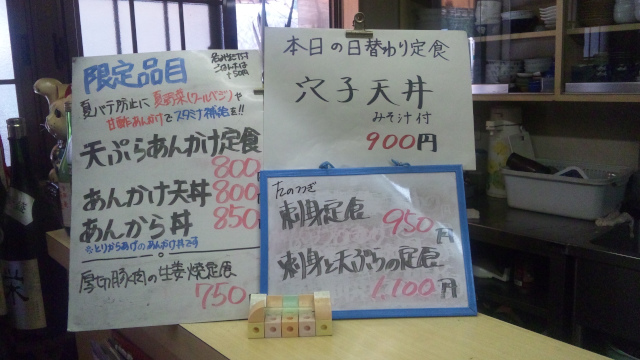 限定品目
+50円
夏バテ防止に 夏野菜(クールベジ)や
甘酢あんかけで スタミナ補給を!!
天ぷらあんかけ定食
800
あんかけ天丼 800
あんから丼 850
※とりからあげのあんかけ丼です
厚切豚肉の生姜焼定食
750
本日の日替わり定食
穴子天丼
みそ汁付
900円
刺身定食 950円
刺身と天ぷらの定食
1,100円